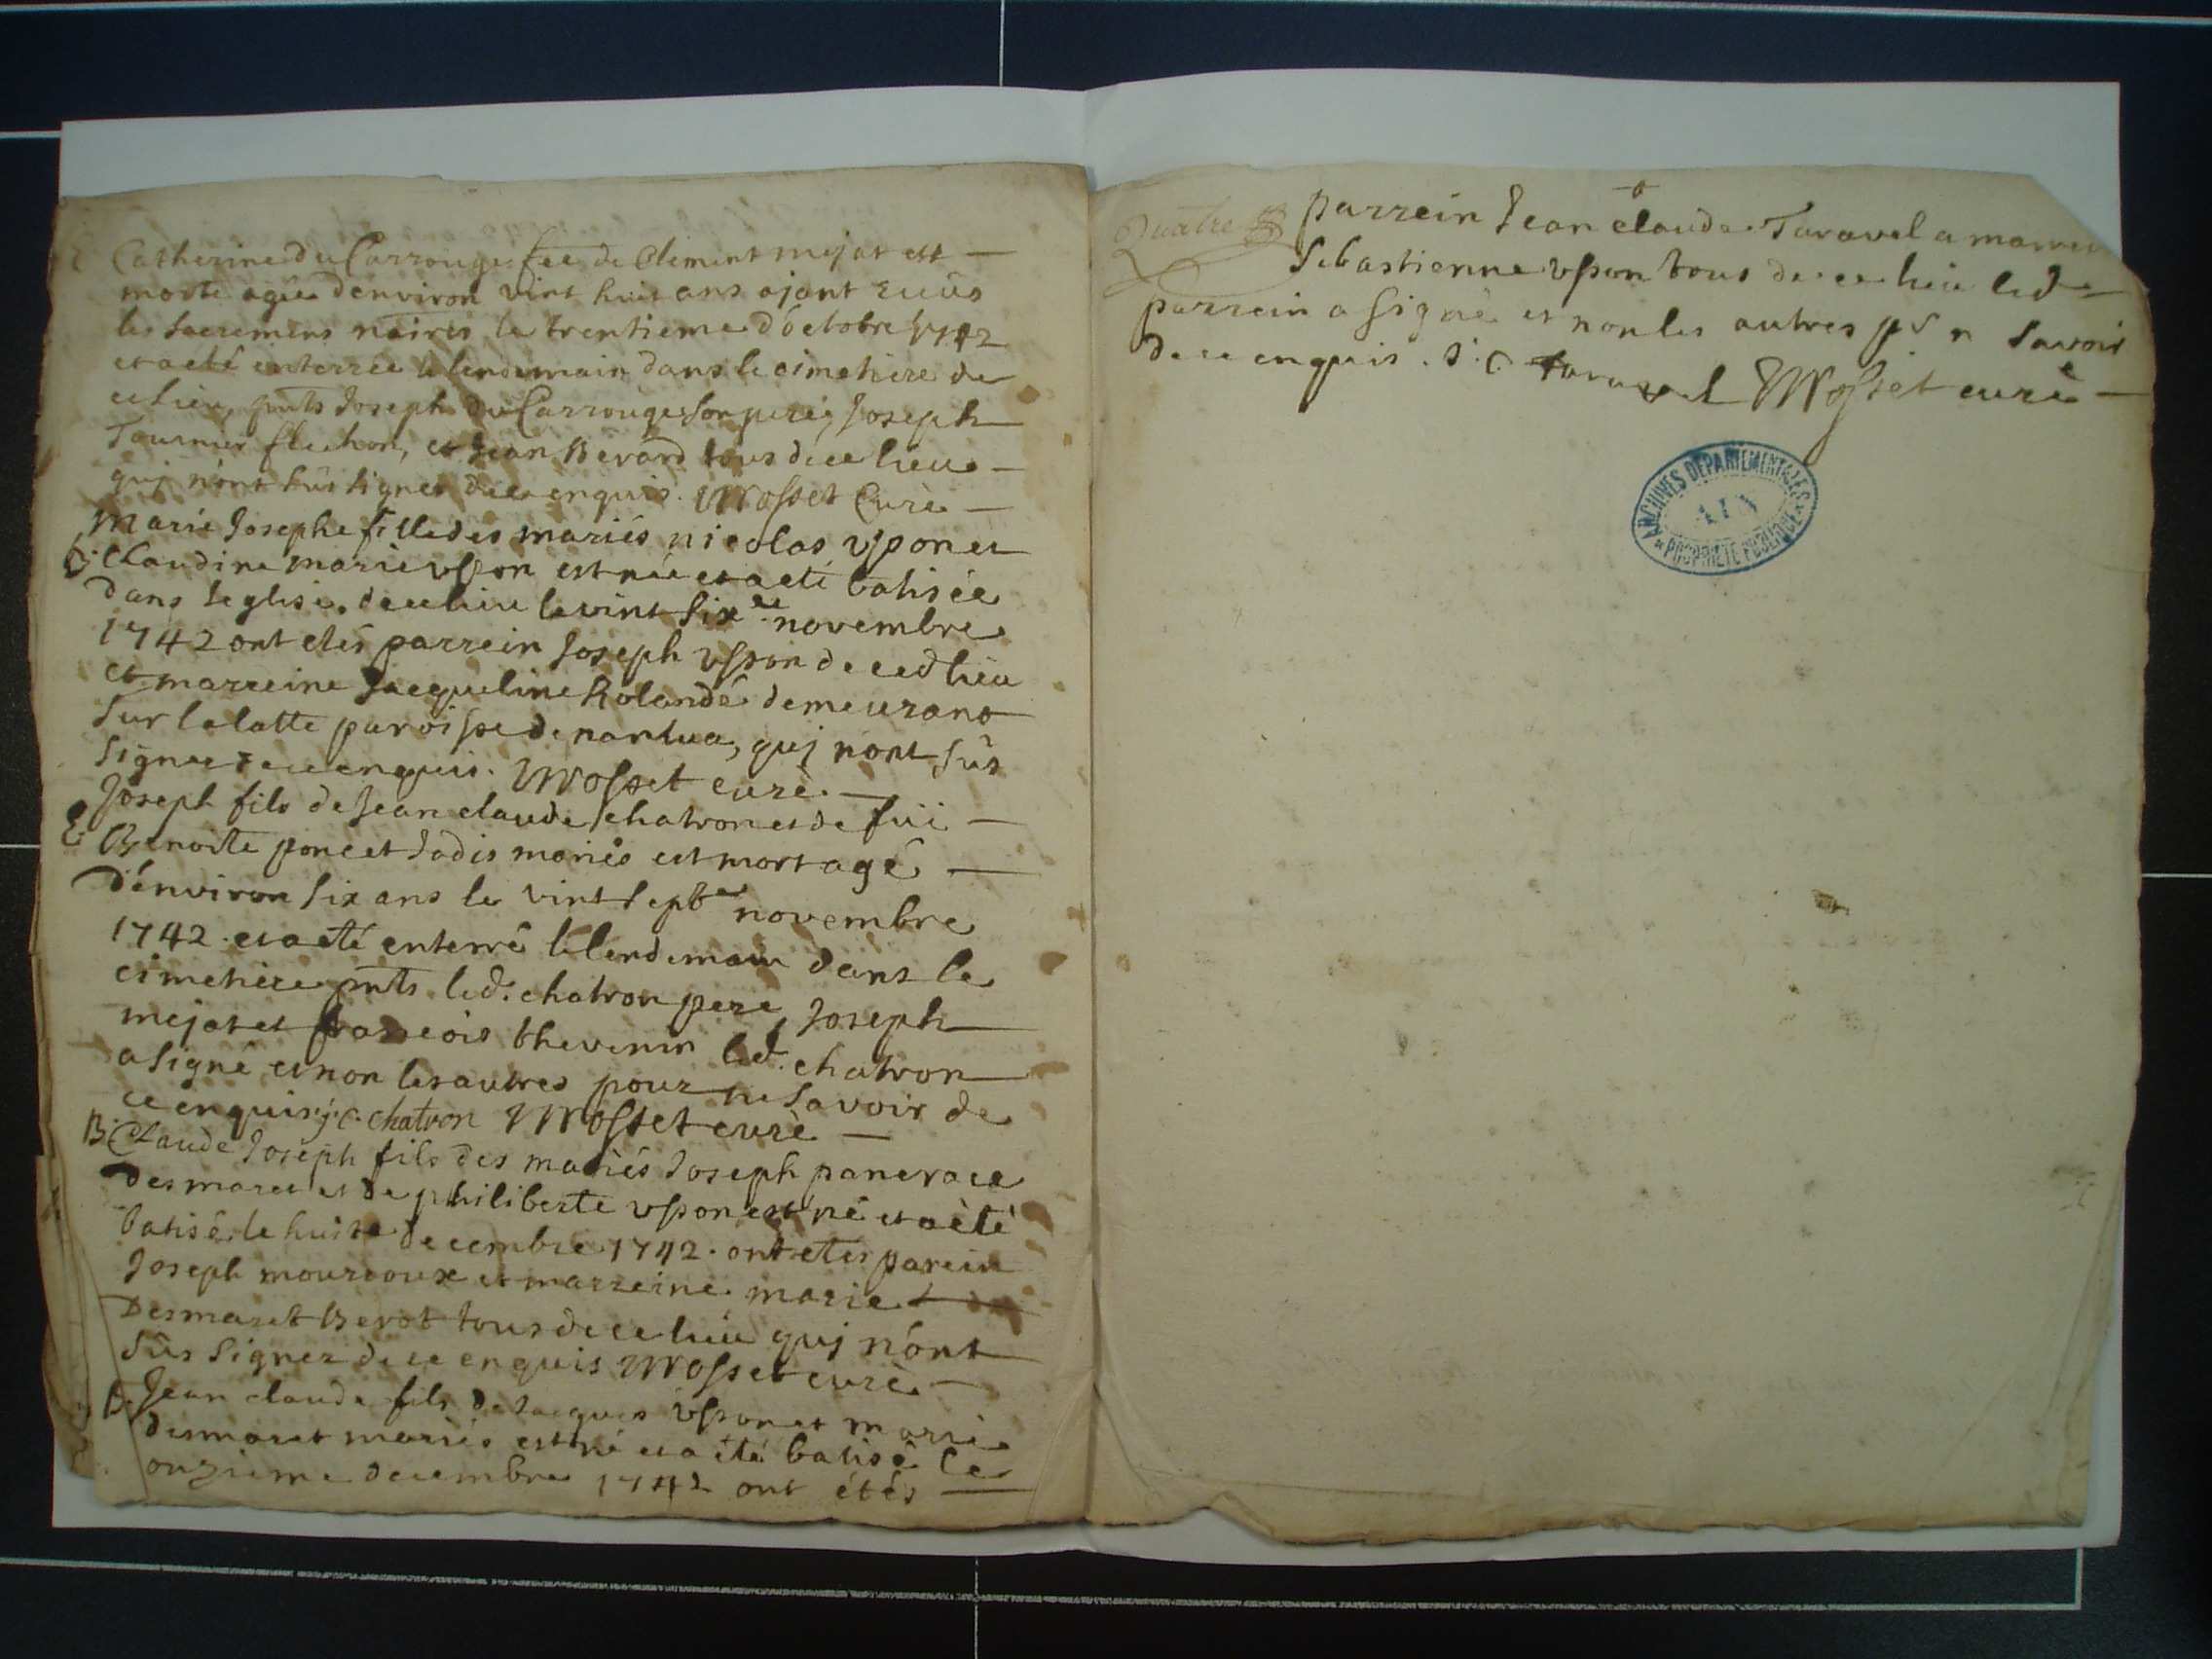 E Catherine du Carrouge fee de Clement mejat est
morte agée d'environ vint huit ans ajant reçûs
les sacremens nairés le trentieme d'octobre 1742
et a eté enterrée le lendemain dans le cimetiere de
ce lieu, pnts Joseph du Carrouge son pere, Joseph
Tournier fluchon, et Jean Berard tous de ce lieu
quj n'ont sus signer de ce enquis. Mosset Curé
Marie Josephe fille des mariés nicolas vsson et
B. Claudine marie vsson est née et a eté batisée
dans leglise de ce lieu le vint six.e novembre
1742 ont etés parrein Joseph vsson de ced lieu
et marreine Jacqueline Rolande demeurant
sur lalatte paroisse de nantua, quj n'ont sus
signer de ce enquis. Mosset curé.
Joseph fils de Jean claude chatron et de füe
E. Benoite poncet Jadis mariés est mort agé
d'énviron six ans le vint sept.e novembre
1742. et a eté enterré le lendemain dans le
cimetiere pnts led. chatron pere, Joseph
mejat et francois thevenin led. chatron
a signé et non les autres pour ne savoir de
ce enquis j. c. chatron Mosset curé
B. Claude Joseph fils des mariés Joseph pancrace
desmaret et de philiberte vsson est né et a èté
batisé le huit.e decembre 1742. ont etés parein
Joseph mourcoux et marreine marie
Desmaret Berot tous de ce lieu quj n'ont
sûs signer de ce enquis Mosset curé.
B. Jean claude fils de Jacques vsson et marie
desmaret mariés est né et a été batisé le
onzieme decembre 1742 ont étés
Quatre
parrein Jean claude Taravel a marreine
Sebastienne vsson tous de ce lieu led
parrein a signé et non les autres pr n savoir
de ce enquis. J. C. taravel Mosset curé
ARCHIVES DEPARTEMENTALES
AIN
* PROPRIETE PUBLIQUE *